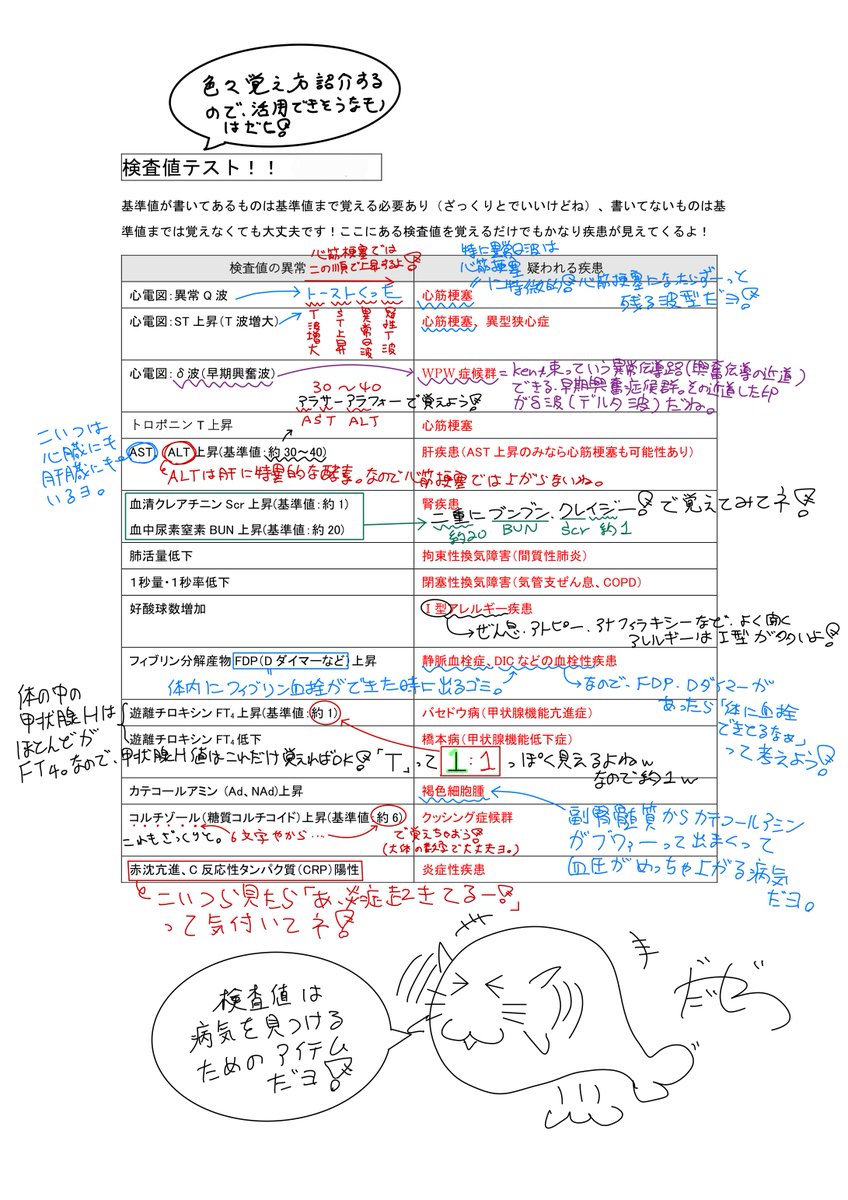 色々覚え方紹介する
ので、活用できそうなモノ
はぜヒ!
検査値テスト!!
基準値が書いてあるものは基準値まで覚える必要あり（ざっくりとでいいけどね）、書いてないものは基
準値までは覚えなくても大丈夫です！ここにある検査値を覚えるだけでもかなり疾患が見えてくるよ！
検査値の異常
疑われる疾患
心筋梗塞では
この順で上昇するよ!
特に異常Q波は
心筋梗塞
に特徴的!心筋梗塞になったらずーっと
残る波型だヨ!
心電図：異常Q波
トーストくった
心筋梗塞
心電図：ST上昇（T波増大）
T波増大
ST上昇
異常Q波
陰性T波
心筋梗塞、異型狭心症
心電図：δ波（早期興奮波）
WPW症候群
=kent束っていう異常伝導路(興奮伝導の近道)
できる、早期興奮症候群。その近道した印
がδ波(デルタ波)だね。
30～40
アラサーアラフォーで覚えよう!
AST ALT
トロポニンT上昇
心筋梗塞
こいつは
心臓にも
肝臓にも
いるヨ。
AST、ALT上昇（基準値：約30~40）
肝疾患（AST上昇のみなら心筋梗塞も可能性あり）
ALTは肝に特異的な酵素。なので心筋梗塞では上がらまいね。
血清クレアチニンScr上昇（基準値：約1）
腎疾患
血中尿素窒素BUN上昇（基準値：約20）
二重にブンブン、クレイジー!で覚えてみてネ!
約20 BUN Scr 約1
肺活量低下
拘束性換気障害（間質性肺炎）
1秒量・1秒率低下
閉塞性換気障害（気管支ぜん息、COPD）
好酸球数増加
Ⅰ型アレルギー疾患
ぜん息、アトピー、アナフィラキシーなど、よく聞く
アレルギーはⅠ型が多いよ!
フィブリン分解産物FDP（Dダイマーなど）上昇
静脈血栓症、DICなどの血栓性疾患
体内にフィブリン血栓ができた時に出るゴミ。
なので、FDP、Dダイマーが
あったら「体に血栓
できとるなぁ」
って考えよう!
体の中の
甲状腺Hは
ほとんどが
FT4。なので、甲状腺H値はこれだけ覚えればOK!「T」って
1:1
っぽく見えるよねw
なので約1w
遊離チロキシンFT₄上昇（基準値：約1）
バセドウ病（甲状腺機能亢進症）
遊離チロキシンFT₄低下
橋本病（甲状腺機能低下症）
カテコールアミン（Ad、NAd）上昇
褐色細胞腫
副腎髄質からカテコールアミン
がブワァーって出まくって
血圧がめっちゃ上がる病気
だヨ。
コルチゾール（糖質コルチコイド）上昇（基準値：約6）
クッシング症候群
これもざっくりと。
6文字やから…
で覚えちゃおう!
(大体の数値で大丈夫ヨ。)
赤沈亢進、C反応性タンパク質（CRP）陽性
炎症性疾患
こいつら見たら「あ、炎症起きてるー!」
って気付いてネ!
検査値は
病気を見つける
ためのアイテム
だヨ!